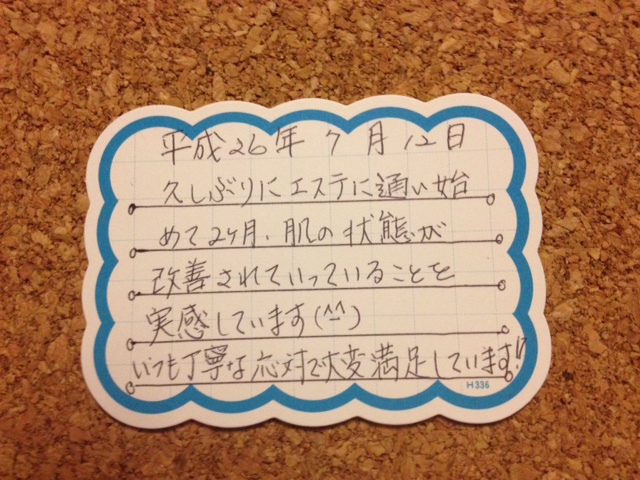 平成26年7月12日
久しぶりにエステに通い始
めて2ヶ月、肌の状態が
改善されていっていることを
実感しています(^^)
いつも丁寧な応対で大変満足しています!!
H336